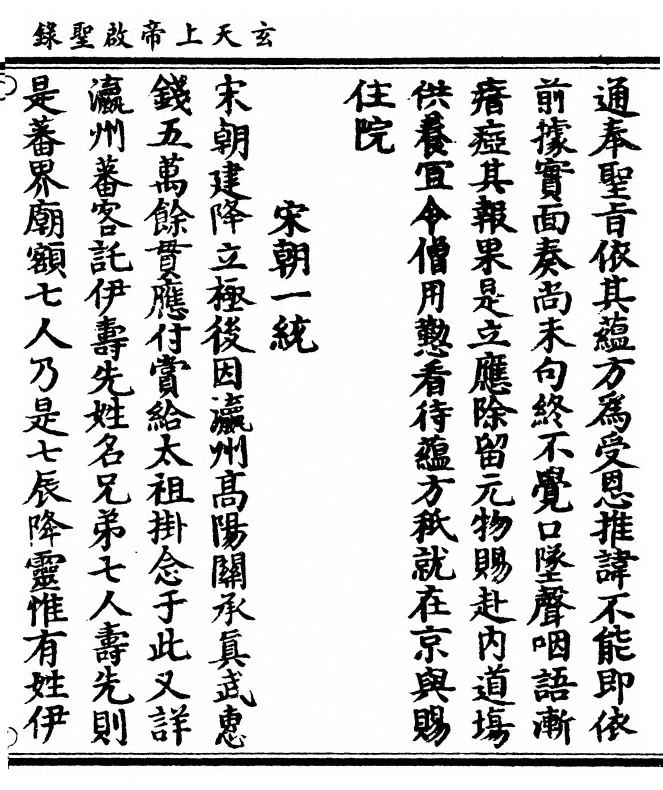 玄天上帝啟聖錄
通奉聖旨依其蘊方爲受恩推諱不能即依
前據實面奏尚未句終不覺口墜聲咽語漸
瘖瘂其報果是立應除留元物賜赴內道塲
供養宜令僧用懃看待蘊方秖就在京與賜
住院
宋朝一統
宋朝建降立極後因瀛州高陽關承真武惠
錢五萬餘貫應付賞給太祖掛念于此又詳
瀛州蕃客託伊壽先姓名兄弟七人壽先則
是蕃界廟額七人乃是七辰降靈惟有姓伊